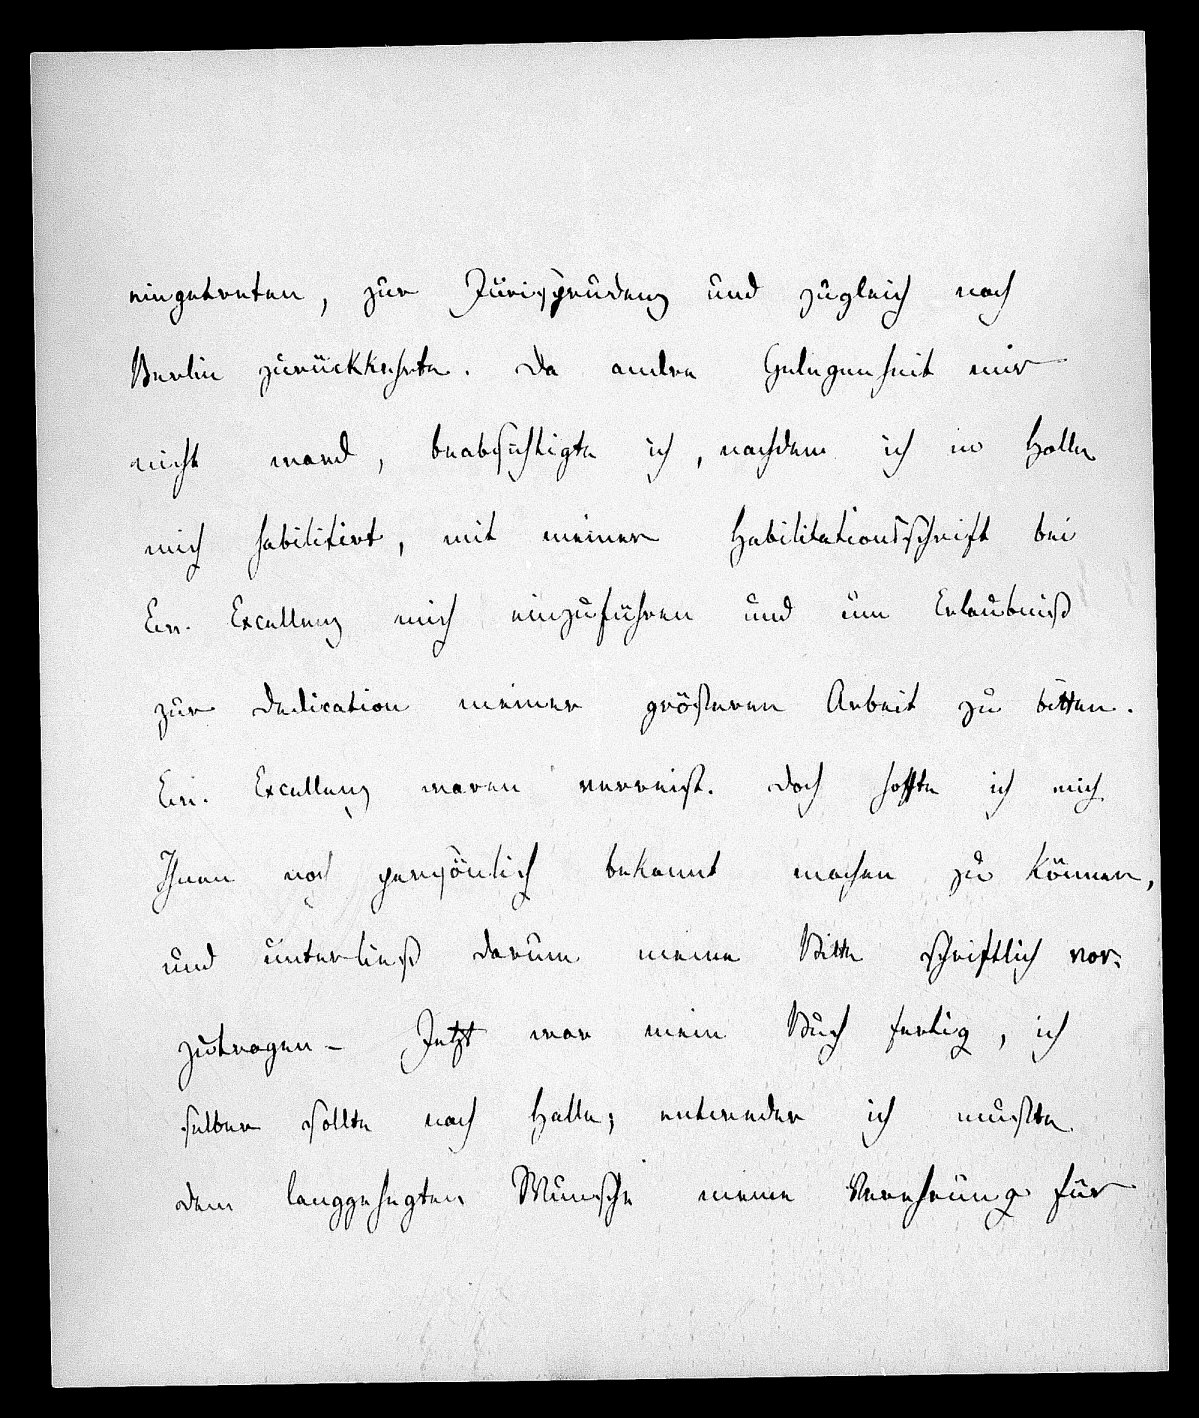 eingetreten, zur Jurisprudenz und zugleich nach
Berlin zurückkehrte. Da andre Gelegenheit mir
nicht ward, beabsichtigte ich, nachdem ich in Halle
mich habilitirt, mit meiner Habilitationsschrift bei
Ew. Excellenz mich einzuführen und um Erlaubniß
zur Dedication meiner größeren Arbeit zu bitten.
Ew. Excellenz waren verreist. Doch hoffte ich mich
Ihnen noch persönlich bekannt machen zu können,
und unterließ darum meine Bitte schriftlich vor-
zutragen – Jetzt war mein Buch fertig, ich
selber sollte nach Halle; entweder ich mußte
dem langgehegten Wunsche meine Verehrung für